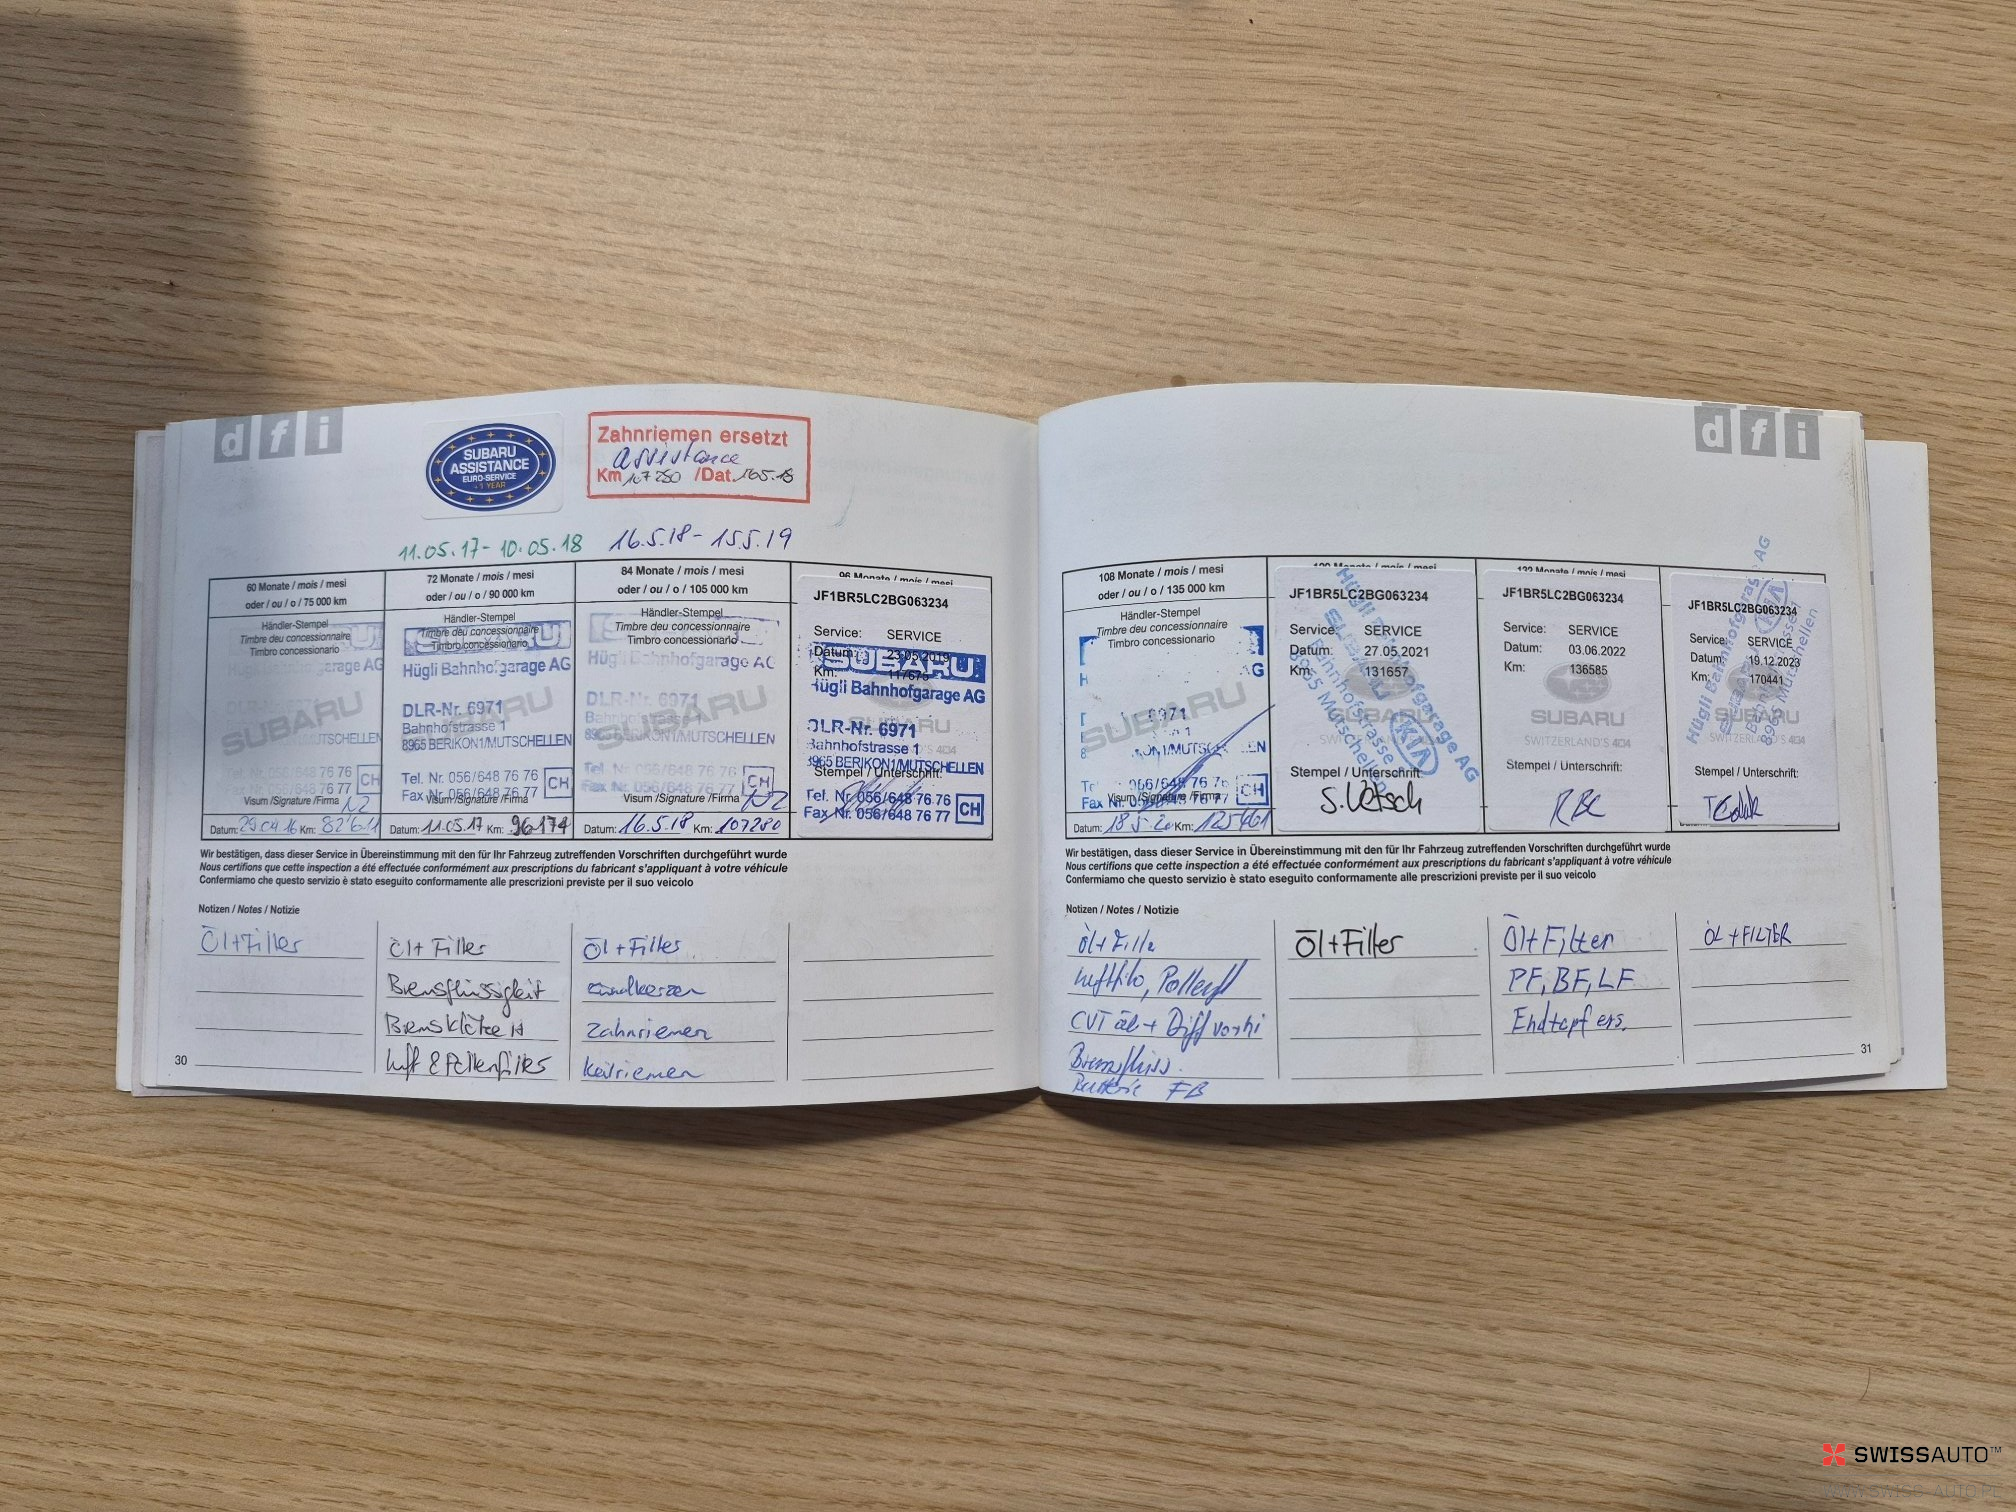 dfi
SUBARU
ASSISTANCE
EURO-SERVICE
+1 YEAR
Zahnriemen ersetzt
Assistance
Km 107280 /Dat. 16.5.18
11.05.17 - 10.05.18
16.5.18 - 15.5.19
60 Monate / mois / mesi
oder / ou / o / 75 000 km
Händler-Stempel
Timbre deu concessionnaire
Timbro concessionario
garage AG
SUBARU
MUTSCHELLEN
Tel. Nr. 056/648 76 76
77
CH
Visum /Signature /Firma
Datum: 29.04.16 Km: 82'611
72 Monate / mois / mesi
oder / ou / o / 90 000 km
Händler-Stempel
Timbre deu concessionnaire
Timbro concessionario
SUBARU
Hügli Bahnhofgarage AG
SUBARU
DLR-Nr. 6971
Bahnhofstrasse 1
8965 BERIKON1/MUTSCHELLEN
Tel. Nr. 056/648 76 76
Fax Nr. 056/648 76 77
CH
Visum /Signature /Firma
Datum: 11.05.17 Km: 96174
84 Monate / mois / mesi
oder / ou / o / 105 000 km
Händler-Stempel
Timbre deu concessionnaire
Timbro concessionario
Hügli Bahnhofgarage AG
DLR-Nr. 6971
SUBARU
Bahnhofstrasse 1
8965 BERIKON1/MUTSCHELLEN
Tel. Nr. 056/648 76 76
Fax Nr. 056/648 76 77
CH
Visum /Signature /Firma
Datum: 16.5.18 Km: 107280
96 Monate / mois / mesi
JF1BR5LC2BG063234
Service: SERVICE
Datum: 23.05.2019
SUBARU
Km: 117675
Hügli Bahnhofgarage AG
DLR-Nr. 6971
Bahnhofstrasse 1
8965 BERIKON1/MUTSCHELLEN
Stempel / Unterschrift:
Tel. Nr. 056/648 76 76
Fax Nr. 056/648 76 77
CH
Wir bestätigen, dass dieser Service in Übereinstimmung mit den für Ihr Fahrzeug zutreffenden Vorschriften durchgeführt wurde
Nous certifions que cette inspection a été effectuée conformément aux prescriptions du fabricant s'appliquant à votre véhicule
Confermiamo che questo servizio è stato eseguito conformamente alle prescrizioni previste per il suo veicolo
Notizen / Notes / Notizie
Öl+Filter
Öl+Filter
Bremsflüssigkeit
Bremsklötze H
Luft & Pollenfilter
Öl+Filter
Zündkerzen
Zahnriemen
Keilriemen
30
dfi
108 Monate / mois / mesi
oder / ou / o / 135 000 km
Händler-Stempel
Timbre deu concessionnaire
Timbro concessionario
G
6971
SUBARU
KON1/MUTSC
LEN
056/648 76 76
Fax Nr. 056/648 76 77
CH
Visum /Signature /Firma
Datum: 18.5.20 Km: 125461
120 Monate / mois / mesi
JF1BR5LC2BG063234
Service: SERVICE
Datum: 27.05.2021
Km: 131657
Hügli Bahnhofgarage AG
SUBARU
KIA
Bahnhofstrasse
8965 Mutschellen
Stempel / Unterschrift:
S. Vetsch
132 Monate / mois / mesi
JF1BR5LC2BG063234
Service: SERVICE
Datum: 03.06.2022
Km: 136585
SUBARU
SWITZERLAND'S 4x4
Stempel / Unterschrift:
JF1BR5LC2BG063234
Service: SERVICE
Datum: 19.12.2023
Km: 170441
Hügli Bahnhofgarage AG
8965 Mutschellen
SUBARU
SWITZERLAND'S 4x4
Stempel / Unterschrift:
Wir bestätigen, dass dieser Service in Übereinstimmung mit den für Ihr Fahrzeug zutreffenden Vorschriften durchgeführt wurde
Nous certifions que cette inspection a été effectuée conformément aux prescriptions du fabricant s'appliquant à votre véhicule
Confermiamo che questo servizio è stato eseguito conformamente alle prescrizioni previste per il suo veicolo
Notizen / Notes / Notizie
Öl+Filter
CVT öl + Diff
Bremsflüss.
Batterie FB
Öl+Filter
Öl+Filter
PF, BF, LF
Endtopf ers.
ÖL+FILTER
31
SWISSAUTO™